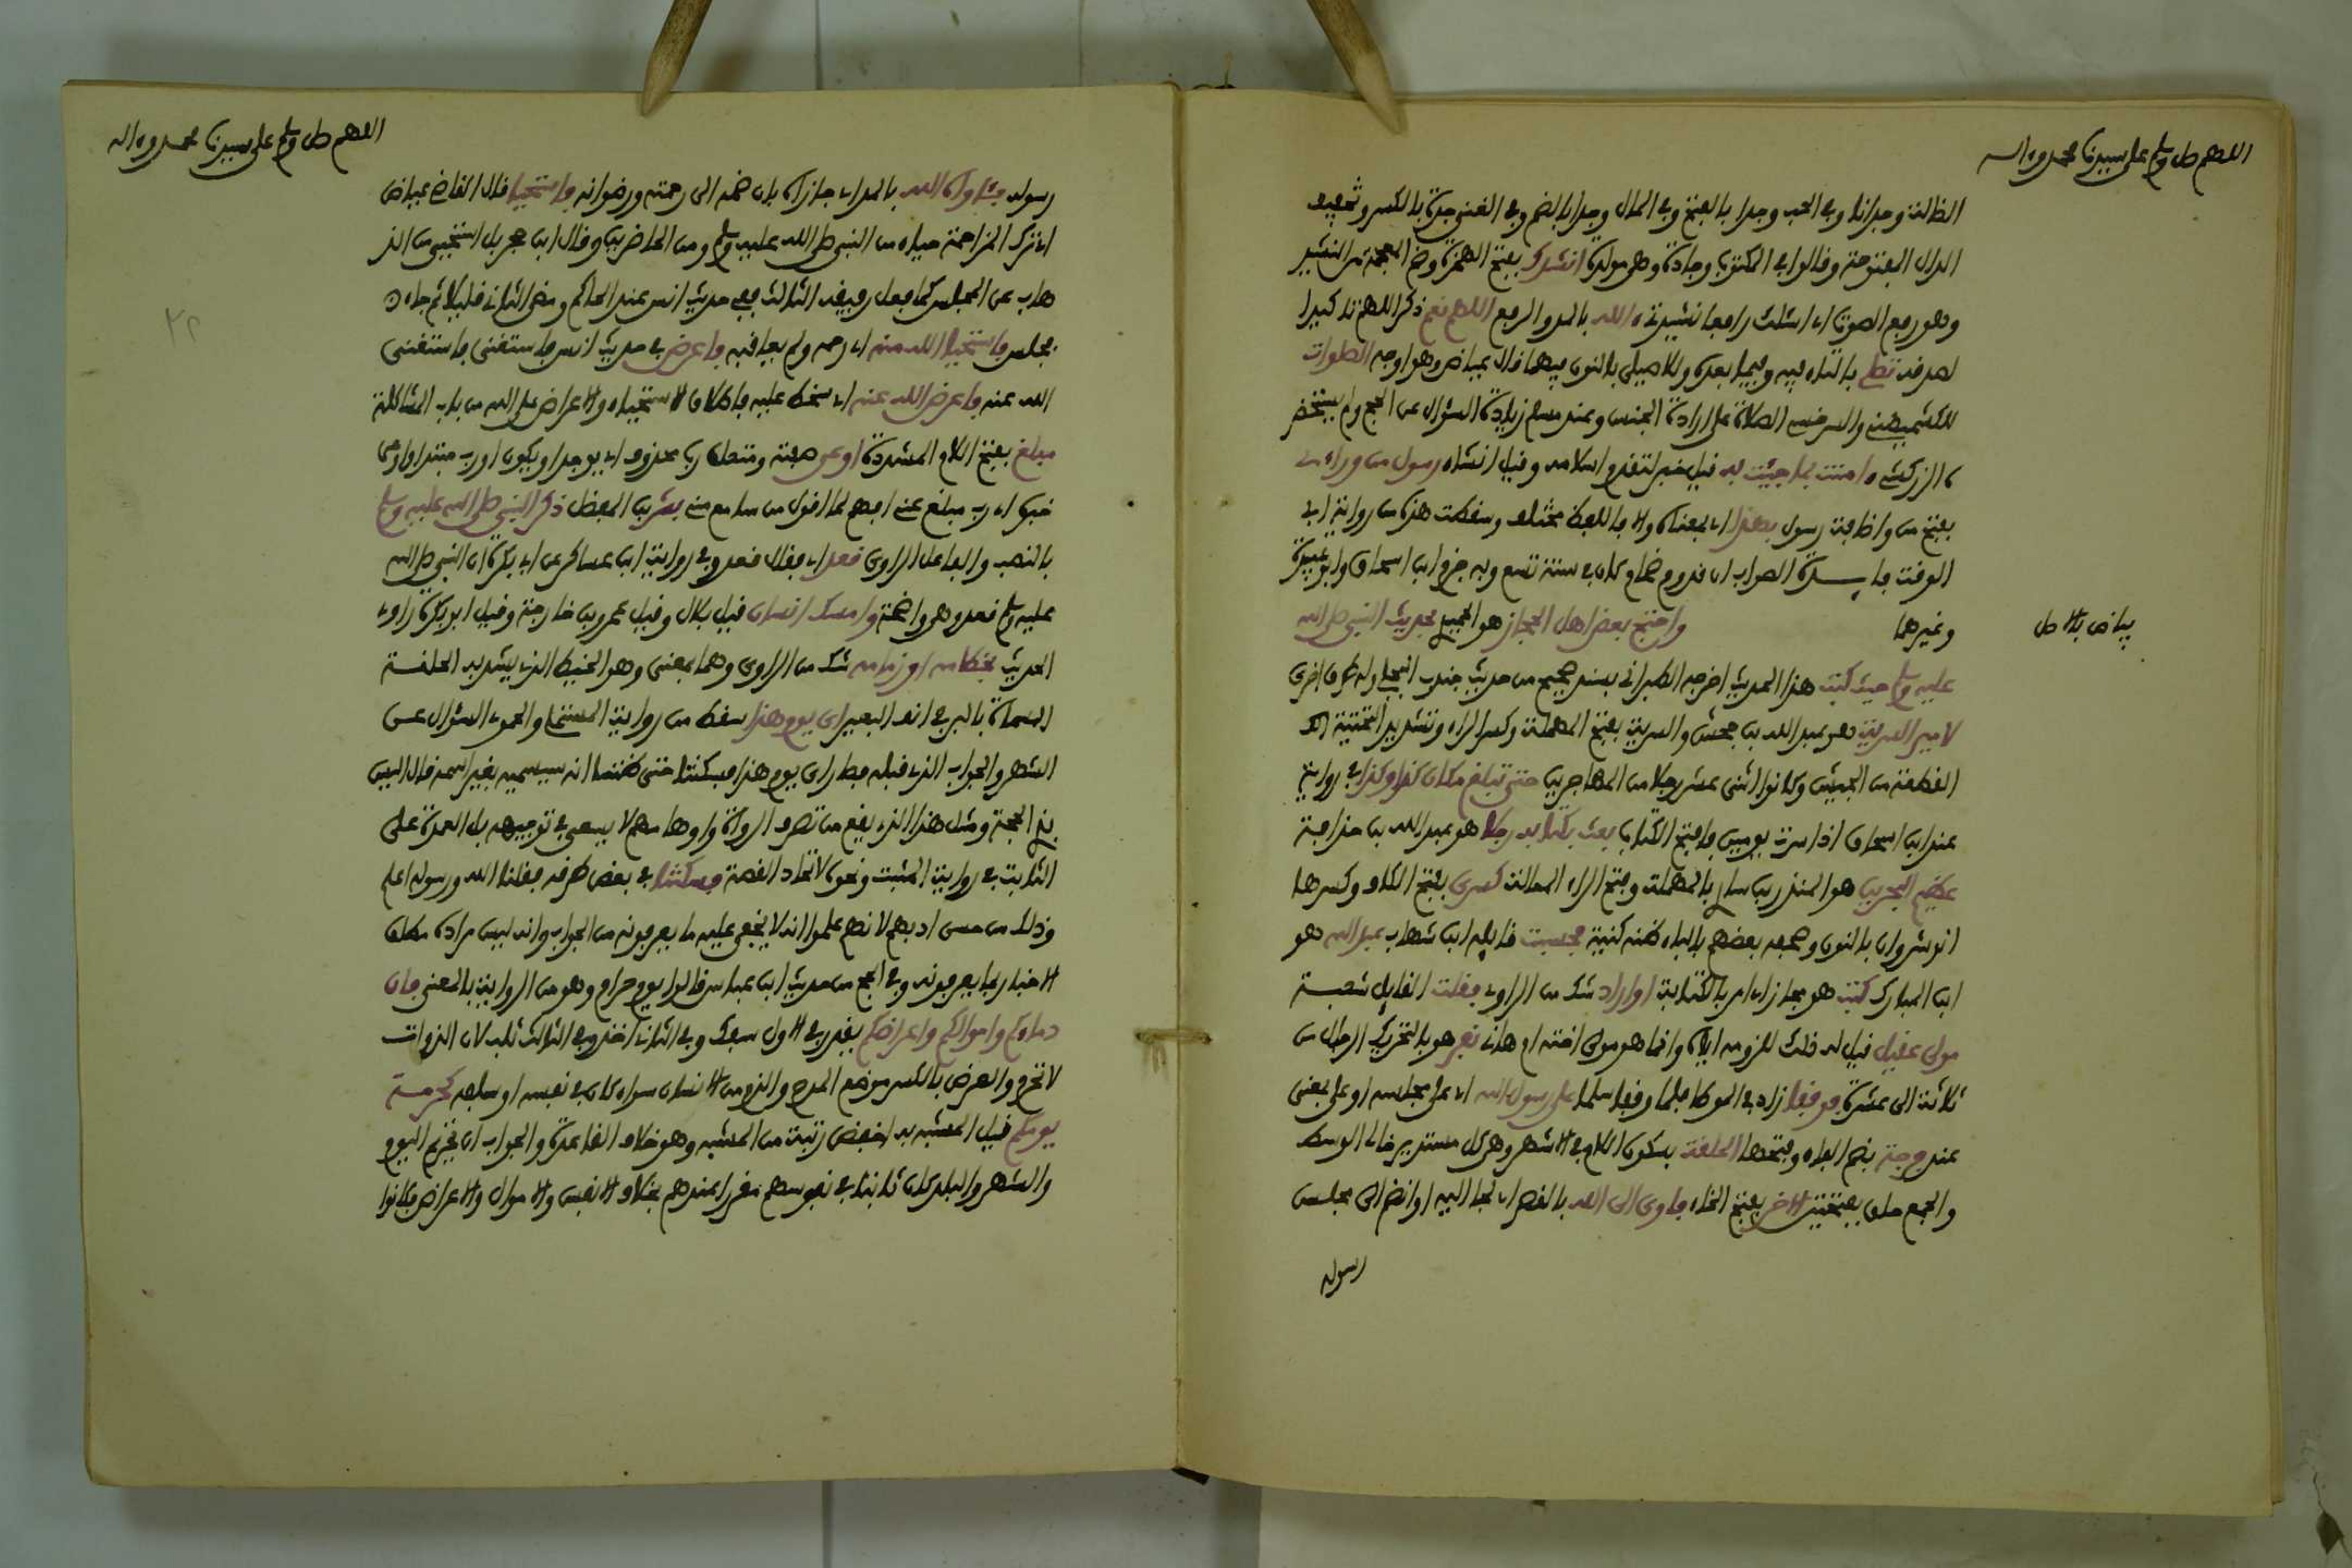 اللهم صل وسلم على سيدنا محمد وءاله
الظالة وجدانا وفي الحب وجدا بالفتح وفي المال وجدا بالضم وفي الغنى جدة بالكسر وتخفيف
الدال المفتوحة وقالوا في المكتوب وجادة وهي مولدة انشدك بفتح الهمزة وضم المعجمة من النشيد
وهو رفع الصوت اي اسئلك رافعا نشيدتي ءالله بالمد والرفع اللهم نعم ذكر اللهم تاكيدا
لصدقه تصلي بالتاء فيه وفيما بعده وللاصيلي بالنون فيهما قال عياض وهو اوجه الصلوات
للكشميهني والسرخسي الصلاة على ارادة الجنس وعند مسلم زيادة السؤال عن الحج ولم يستحضره
الزركشي ءامنت بما جئت به قيل خبر لتقدم اسلامه وقيل انشاء رسول من وراءي
بفتح من واضافة رسول بهذا اي بمعناه والا فاللفظ مختلف وسقطت هذه من رواية ابي
الوقت فايدة الصواب ان قدوم ضمام كان في سنة تسع وبه جزم ابن اسحاق وابو عبيدة
وغيرهما واحتج بعض اهل الحجاز هو الحميدي بحديث النبي صلى الله
بياض بالاصل
عليه وسلم حيث كتب هذا الحديث اخرجه الطبراني بسند صحيح من حديث جندب البجلي وله طرق اخرى
لامير السرية هو عبد الله بن جحش والسرية بفتح المهملة وكسر الراء وتشديد التحتية
القطعة من الجيش وكانوا اثنى عشر رجلا من المهاجرين حتى تبلغ مكان كذا وكذا في رواية
عند ابن اسحاق اذا سرت يومين فافتح الكتاب بعث بكتابه رجلا هو عبد الله بن حذافة
عظيم البحرين هو المنذر بن ساوى بالمهملة وفتح الراء الممالة كسرى بفتح الكاف وكسرها
انوشروان بالنون وصحفه بعضهم بالباء ظنه كنية فحسبت قايله ابن شهاب عبد الله هو
ابن المبارك كتب هو مجاز اي امر بالكتابة او اراد شك من الراوي فقلت القايل شعبة
مولى عقيل قيل له ذلك للزومه اياه وانما هو مولى اخته ام هاني نفر هو بالتحريك الرجال من
ثلاثة الى عشرة فوقفا زاد في الموطا فلما وقفا سلما على رسول الله اي على مجلسه او على بمعنى
عند فرجة بضم الفاء وفتحها الحلقة بسكون اللام في الاشهر وهي كل مستدير خالي الوسط
والجمع حلق بفتحتين الاخر بفتح الخاء فاوى الى الله بالقصر اي لجا اليه او انضم الى مجلس
رسوله
اللهم صل وسلم على سيدنا محمد وءاله
رسوله فئاواه الله بالمد اي جازاه بان ضمه الى رحمته ورضوانه فاستحيا قال القاضي عياض
اي ترك المزاحمة حياء من النبي صلى الله عليه وسلم ومن الحاضرين وقال ابن حجر بل استحيى من الذ
هاب عن المجلس كما فعل رفيقه الثالث ففي حديث انس عند الحاكم ومضى الثاني قليلا ثم جاء
فجلس فاستحيا الله منه اي رحمه ولم يعاقبه فاعرض في حديث انس فاستغنى فاستغنى
الله عنه فاعرض الله عنه اي سخط عليه فاطلاق الاستحياء والاعراض على الله من باب المشاكلة
مبلغ بفتح اللام المشددة اوعى صفته ومتعلق رب محذوف اي يوجد او يكون او رب مبتدا واوعى
خبره اي رب مبلغ عني افهم لما اقول من سامع مني بشر بن المفضل ذكر النبي صلى الله عليه وسلم
بالنصب والفاعل الراوي قعد اي فقال قعد وفي رواية ابن عساكر عن ابي بكرة ان النبي صلى الله
عليه وسلم قعد وهو واضحة وامسك انسان قيل بلال وقيل عمرو بن خارجة وقيل ابو بكرة راوي
الحديث بخطامه او زمامه شك من الراوي وهما بمعنى وهو الخيط الذي يشد به الحلقة
المسماة بالبرة في انف البعير اي يوم هذا سقط من رواية المستملي والحموي السؤال عن
الشهر والجواب الذي قبله فصار اي يوم هذا فسكتنا حتى ظننا انه سيسميه بغير اسمه قال اليس
بذي الحجة ومثل هذا الذي يقع من تصرف الرواة واوهامهم لا يسعى في توجيهه بل العمدة على
الثابت في رواية المثبت ونحوه لاتحاد القصة فسكتنا في بعض طرقه فقلنا الله ورسوله اعلم
وذلك من حسن ادبهم لانهم علموا انه لا يخفى عليه ما يعرفونه من الجواب وانه ليس مراده مطلق
الاخبار بما يعرفونه وفي الحج من حديث ابن عباس قالوا يوم حرام وهو من الرواية بالمعنى فان
دماءكم واموالكم واعراضكم يقدر في الاول سفك وفي الثاني اخذ وفي الثالث ثلب لان الذوات
لا تحرم والعرض بالكسر موضع المدح والذم من الانسان سواء كان في نفسه او سلفه كحرمة
يومكم قيل المشبه به اخفض رتبة من المشبه وهو خلاف القاعدة والجواب ان تحريم اليوم
والشهر والبلد كان ثابتا في نفوسهم مقررا عندهم بخلاف الانفس والاموال والاعراض فكانوا